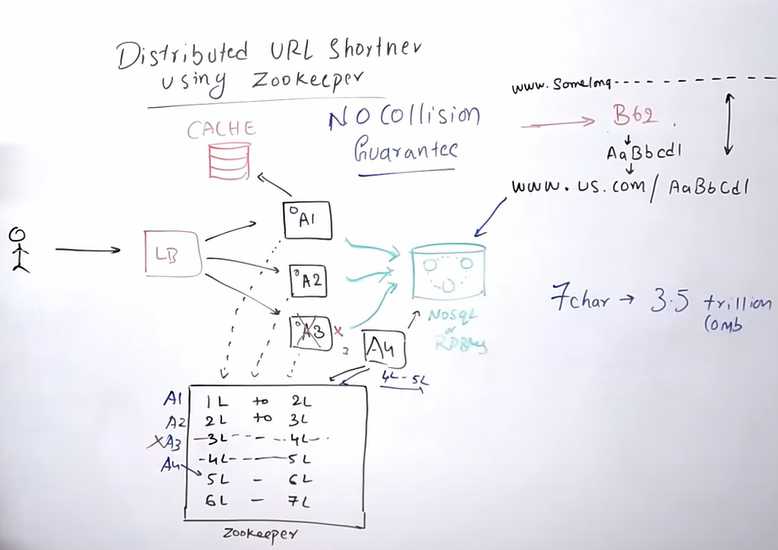 Distributed URL Shortner
using Zookeeper
CACHE
NO Collision
Guarantee
www.Somelong
B62
AaBbCdl
www.us.com/ AaBbCdl
LB
A1
A2
A3 x
A4
4L - 5L
NOSQL
or
RDBMS
7char → 3.5 trillion
Comb
A1 1L to 2L
A2 2L to 3L
xA3 3L - 4L
A4 4L - 5L
5L - 6L
6L - 7L
Zookeeper